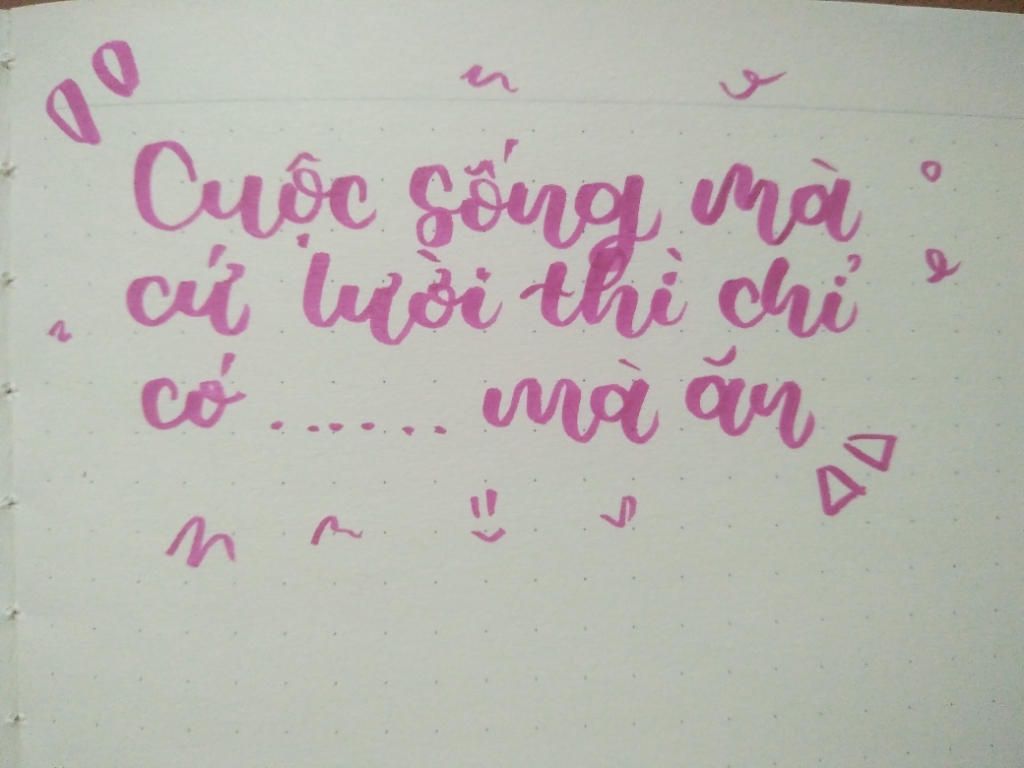 Cuộc sống mà
cứ lười thì chỉ
có ...... mà ăn